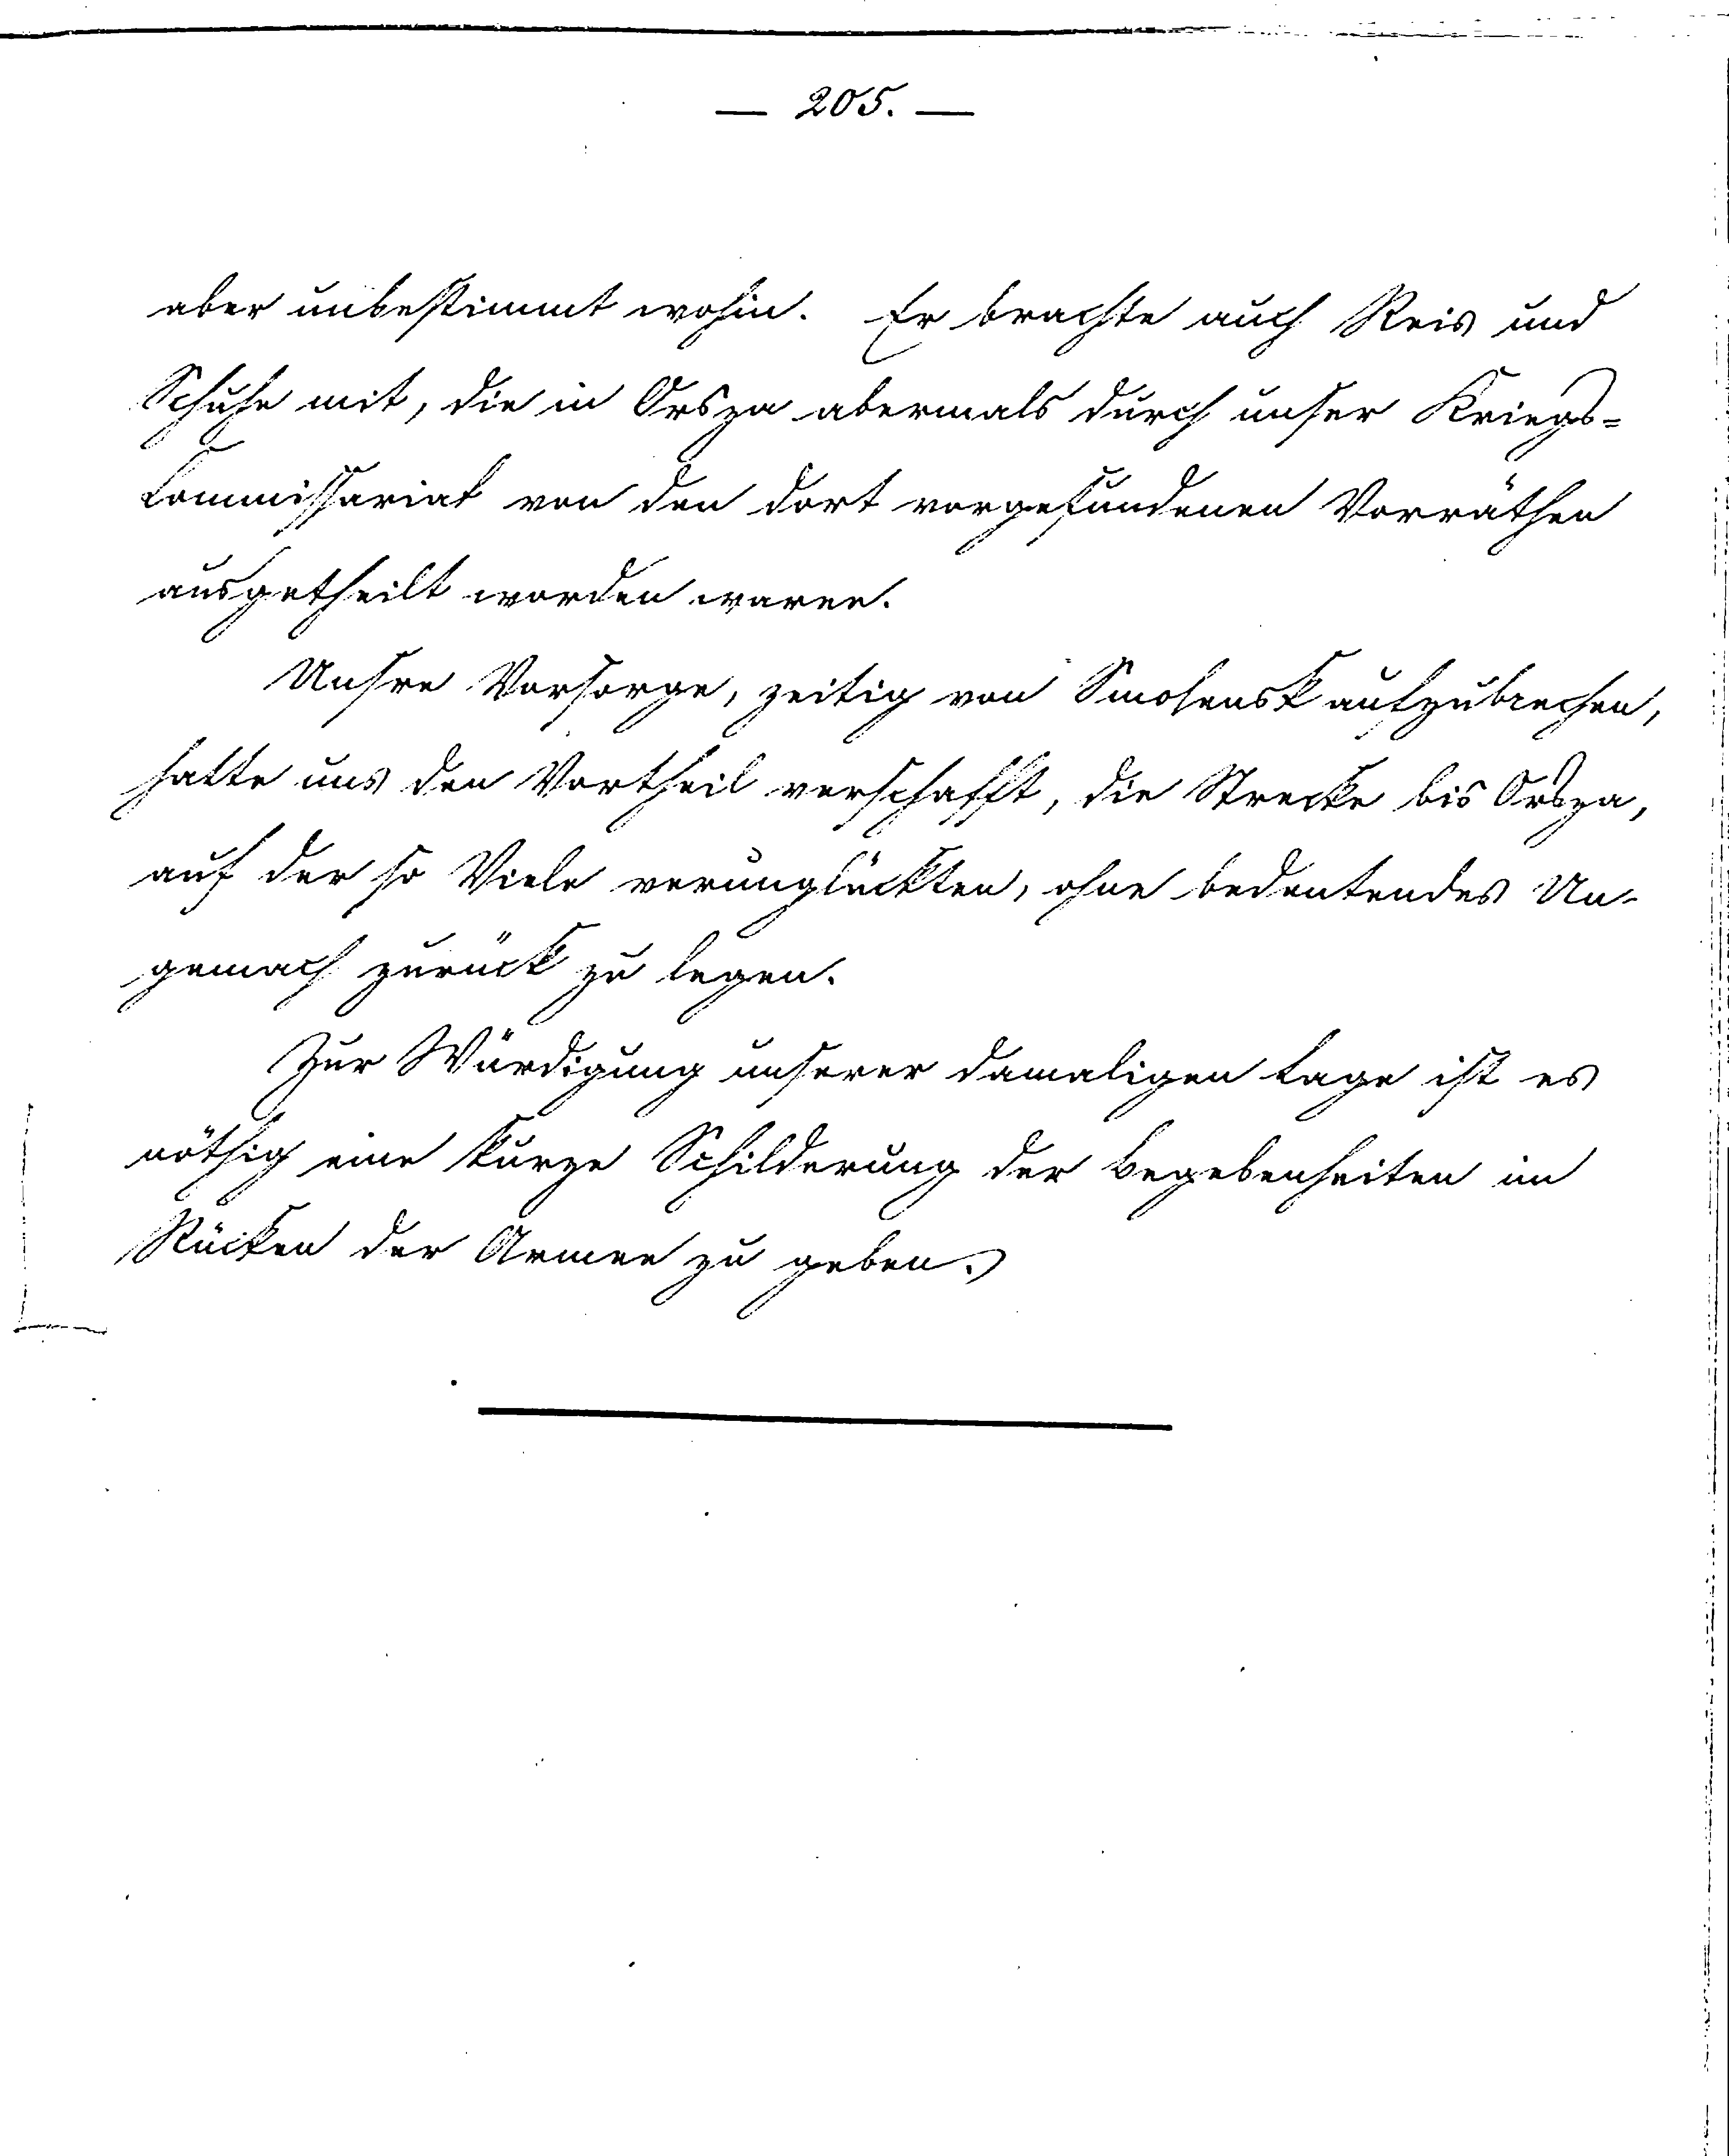 — 205. —
aber unbestimmt wohin. Er brachte auch Reis und
Schuhe mit, die in Orsza abermals durch unser Kriegs=
Commissariat von den dort vorgefundenen Vorräthen
ausgetheilt worden waren.
Unsre Vorsorge, zeitig von Smolensk aufzubrechen,
hatte uns den Vortheil verschafft, die Strecke bis Orsza,
auf der so Viele verunglückten, ohne bedeutendes Un-
gemach zurück zu legen.
Zur Würdigung unserer damaligen Lage ist es
nöthig eine kurze Schilderung der Begebenheiten im
Rücken der Armee zu geben.